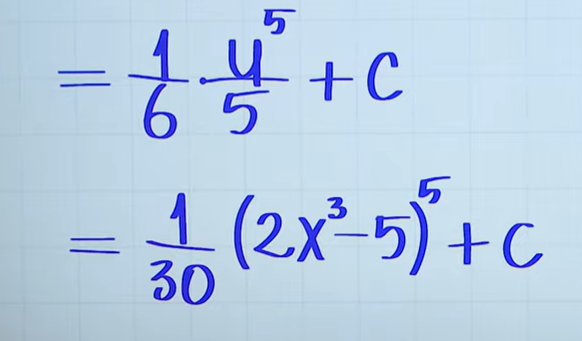 = 1/6 · u⁵/5 + C
= 1/30 (2x³-5)⁵ + C